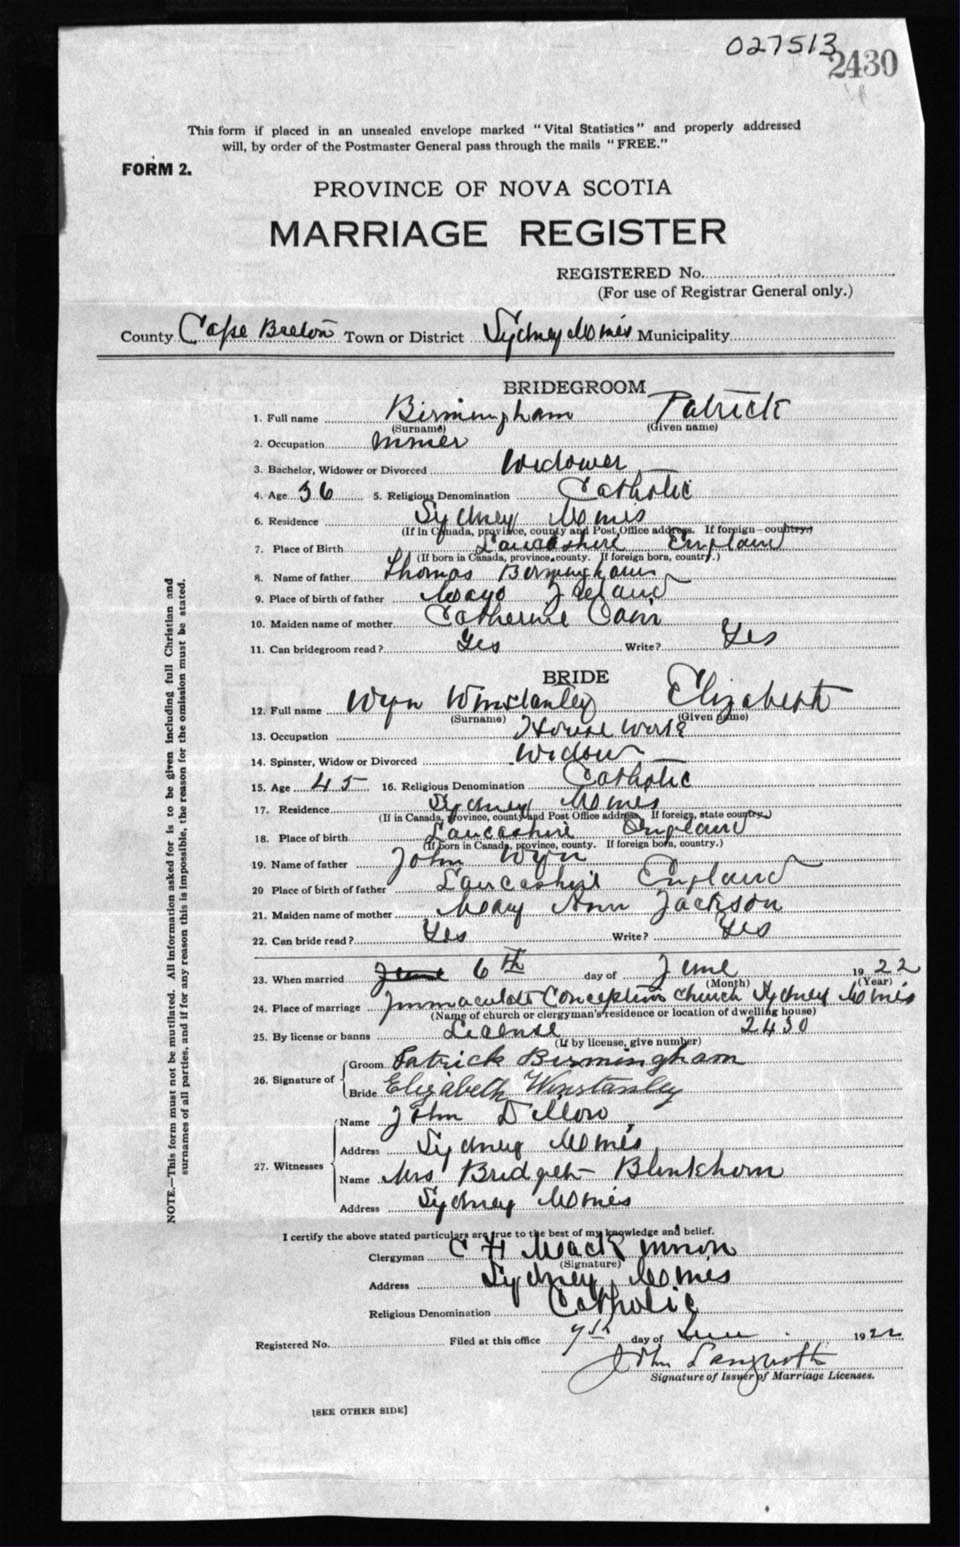 027513
2430
This form if placed in an unsealed envelope marked "Vital Statistics" and properly addressed
will, by order of the Postmaster General pass through the mails "FREE."
FORM 2.
PROVINCE OF NOVA SCOTIA
MARRIAGE REGISTER
REGISTERED No.
(For use of Registrar General only.)
County Cape Breton Town or District Sydney Mines Municipality
BRIDEGROOM
1. Full name Birmingham Patrick
(Surname) (Given name)
2. Occupation miner
3. Bachelor, Widower or Divorced Widower
4. Age 36 5. Religious Denomination Catholic
6. Residence Sydney Mines
(If in Canada, province, county and Post Office address. If foreign country.)
7. Place of Birth Lancashire England
(If born in Canada, province, county. If foreign born, country.)
8. Name of father Thomas Birmingham
9. Place of birth of father Mayo Ireland
10. Maiden name of mother Catherine
11. Can bridegroom read? Yes Write? Yes
BRIDE
12. Full name Wyn Winstanley Elizabeth
(Surname) (Given name)
13. Occupation House Work
14. Spinster, Widow or Divorced Widow
15. Age 45 16. Religious Denomination Catholic
17. Residence Sydney Mines
(If in Canada, province, county and Post Office address. If foreign, state country.)
18. Place of birth Lancashire England
(If born in Canada, province, county. If foreign born, country.)
19. Name of father John Wyn
20 Place of birth of father Lancashire England
21. Maiden name of mother Mary Ann Jackson
22. Can bride read? Yes Write? Yes
23. When married June 6th day of June 1922
(Month) (Year)
24. Place of marriage Immaculate Conception Church Sydney Mines
(Name of church or clergyman's residence or location of dwelling house)
25. By license or banns License 2430
(If by license, give number)
26. Signature of
Groom Patrick Birmingham
Bride Elizabeth Winstanley
27. Witnesses
Name John Dillon
Address Sydney Mines
Name Mrs Bridget Blinkhorn
Address Sydney Mines
I certify the above stated particulars are true to the best of my knowledge and belief.
Clergyman C H MacKinnon
(Signature)
Address Sydney Mines
Religious Denomination Catholic
Registered No. Filed at this office 7th day of June 1922
John Langwith
Signature of Issuer of Marriage Licenses.
[SEE OTHER SIDE]
NOTE.—This form must not be mutilated. All information asked for is to be given including full Christian and
surnames of all parties, and if for any reason this is impossible, the reason for the omission must be stated.